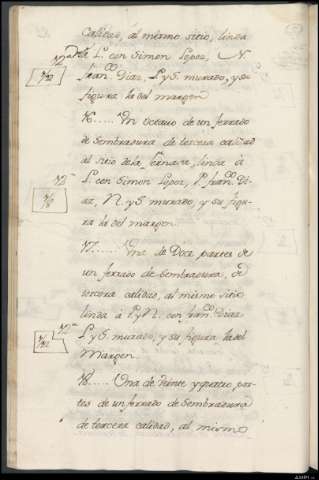 calidad, al mismo sitio, linda
á L. con Simon Lopez, N.
franco. Diaz, P. y S. murado, y su
figura la del margen
16..... Un octavo de un ferrado
de sembradura de tercera calidad
al sitio de la linda á
L. con Simon Lopez, P. franco. Di-
az, N. y S. murado, y su figu-
ra la del margen.
1/8
17...... Una de Doce partes de
un ferrado de Sembradura, de
tercera calidad, al mismo sitio
linda á P. y N. con franco. Diaz
L. y S. murado, y su figura la del
Margen.
1/12
18..... Una de veinte y quatro par-
tes de un ferrado de Sembradura
de tercera calidad, al mismo